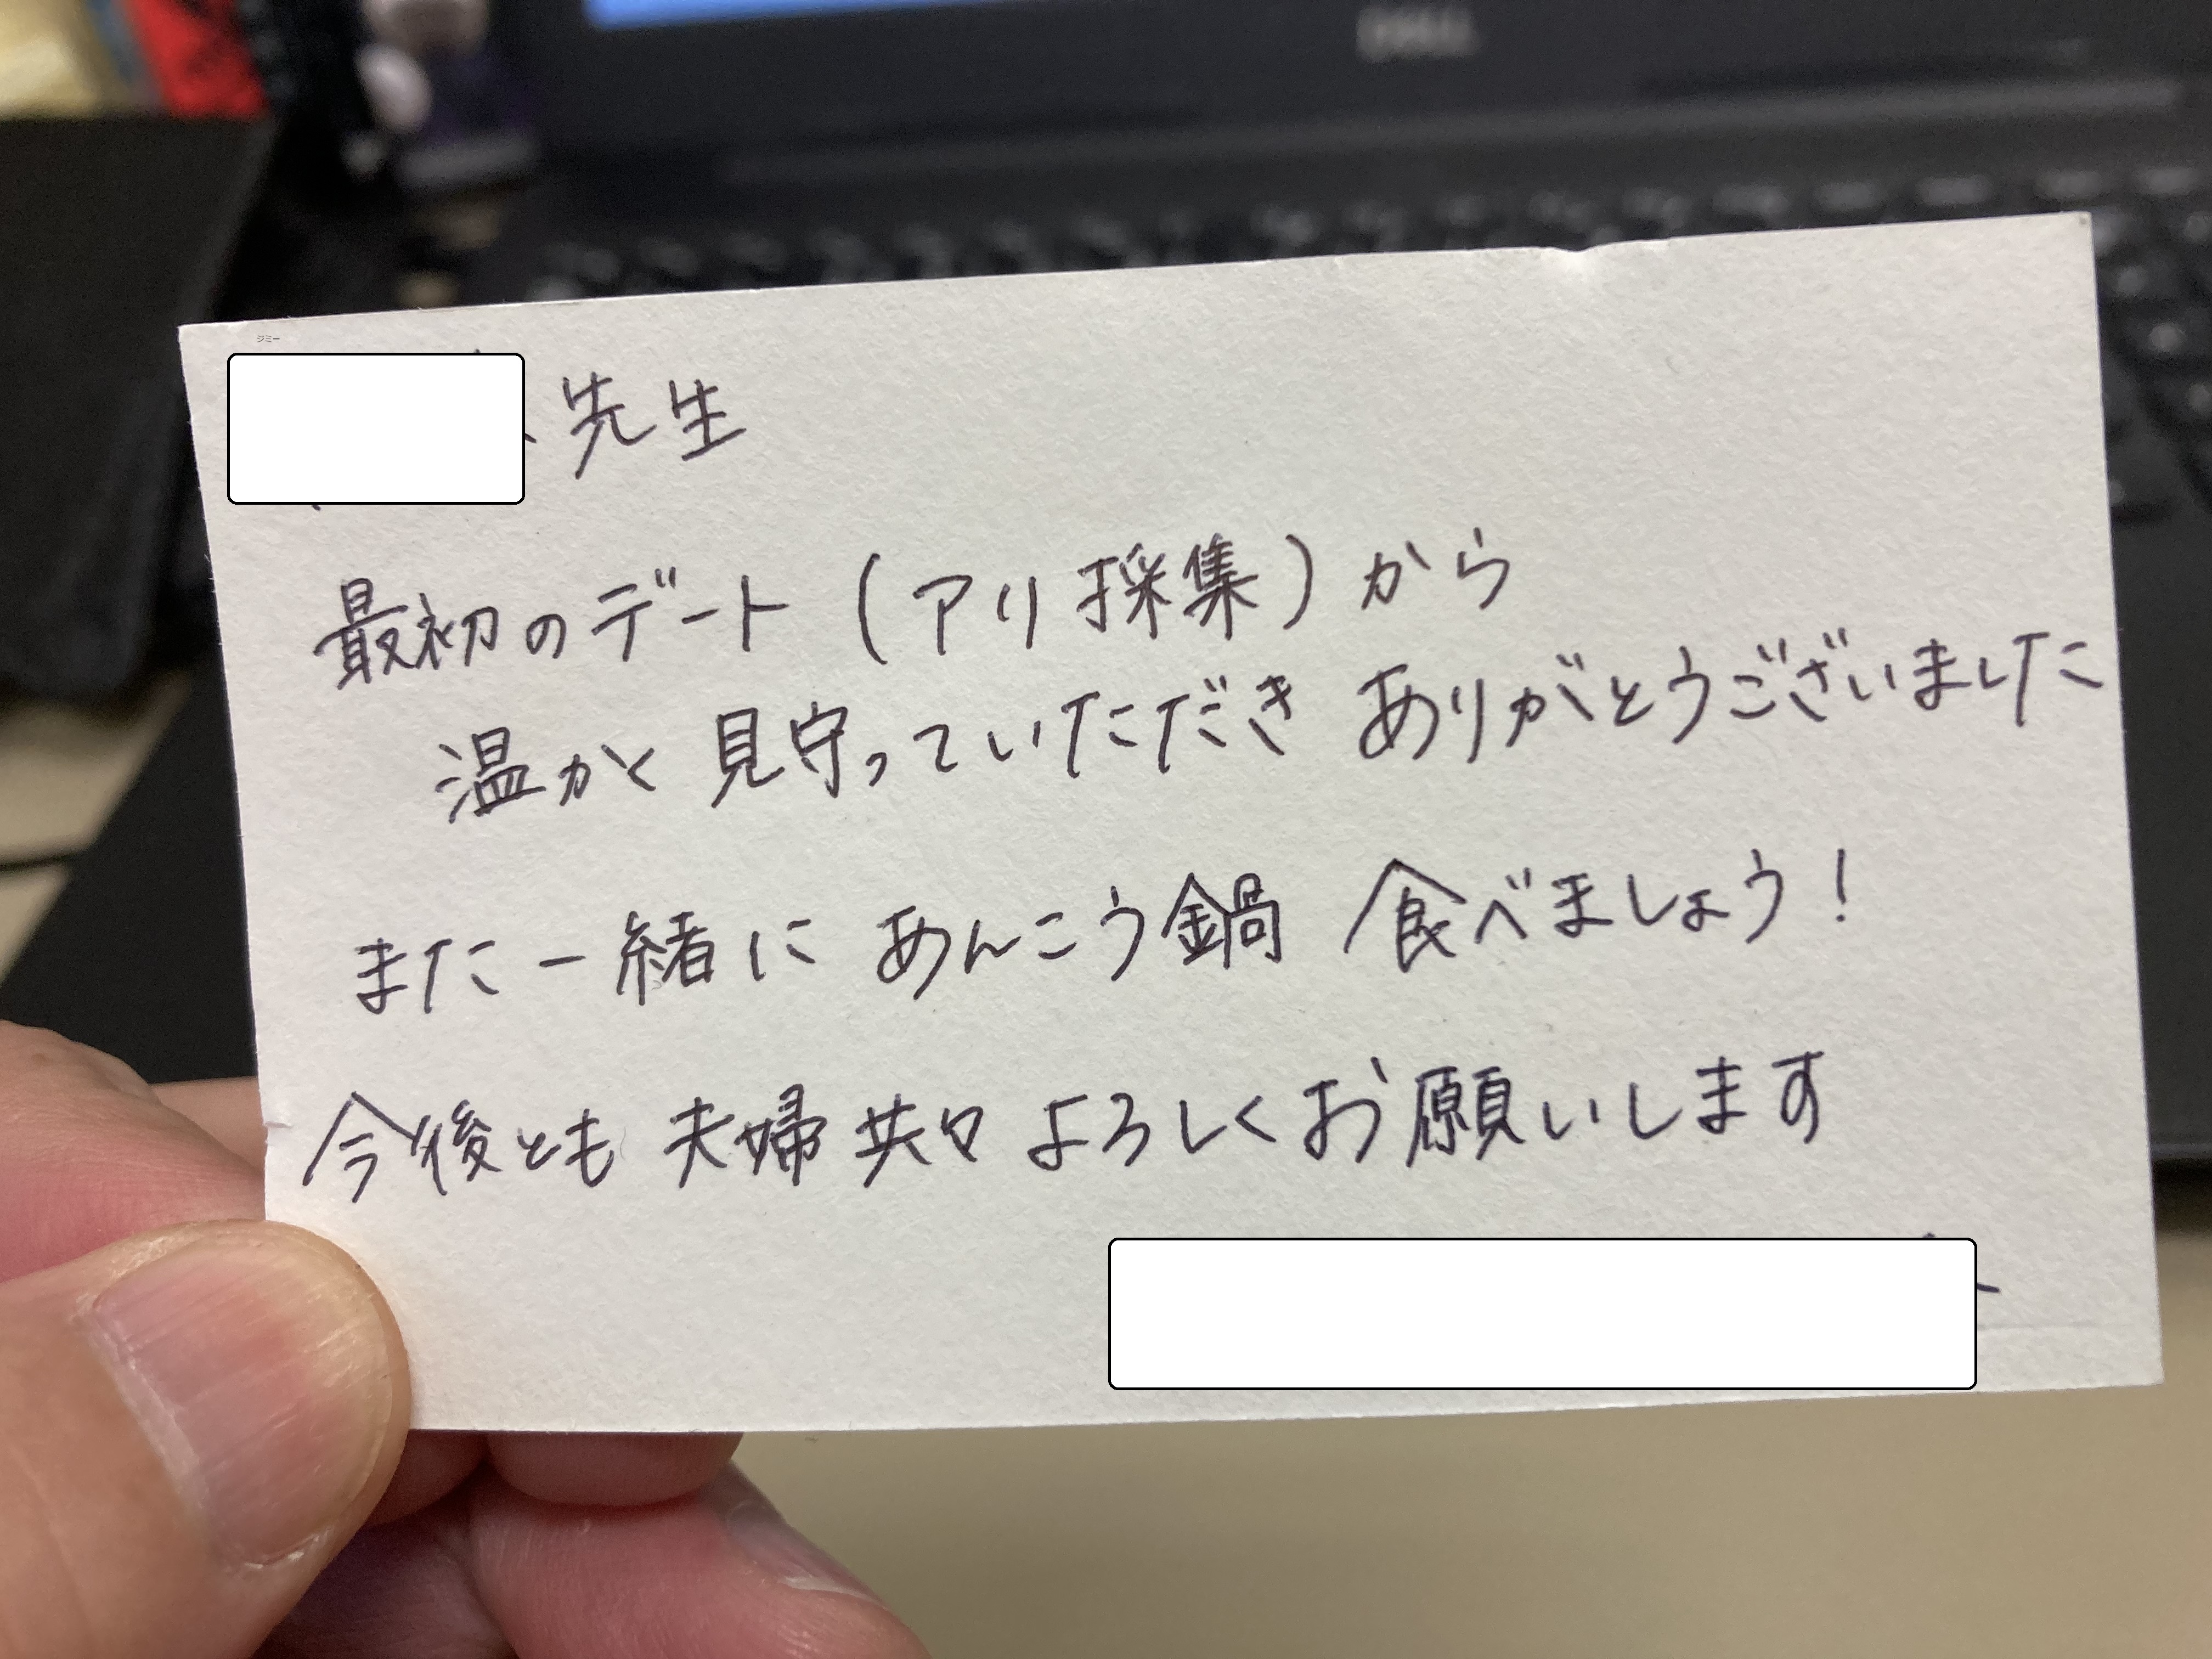 DELL
ジミー
先生
最初のデート(アリ採集)から
温かく見守っていただき ありがとうございました
また一緒に あんこう鍋 食べましょう!
今後とも 夫婦共々 よろしくお願いします